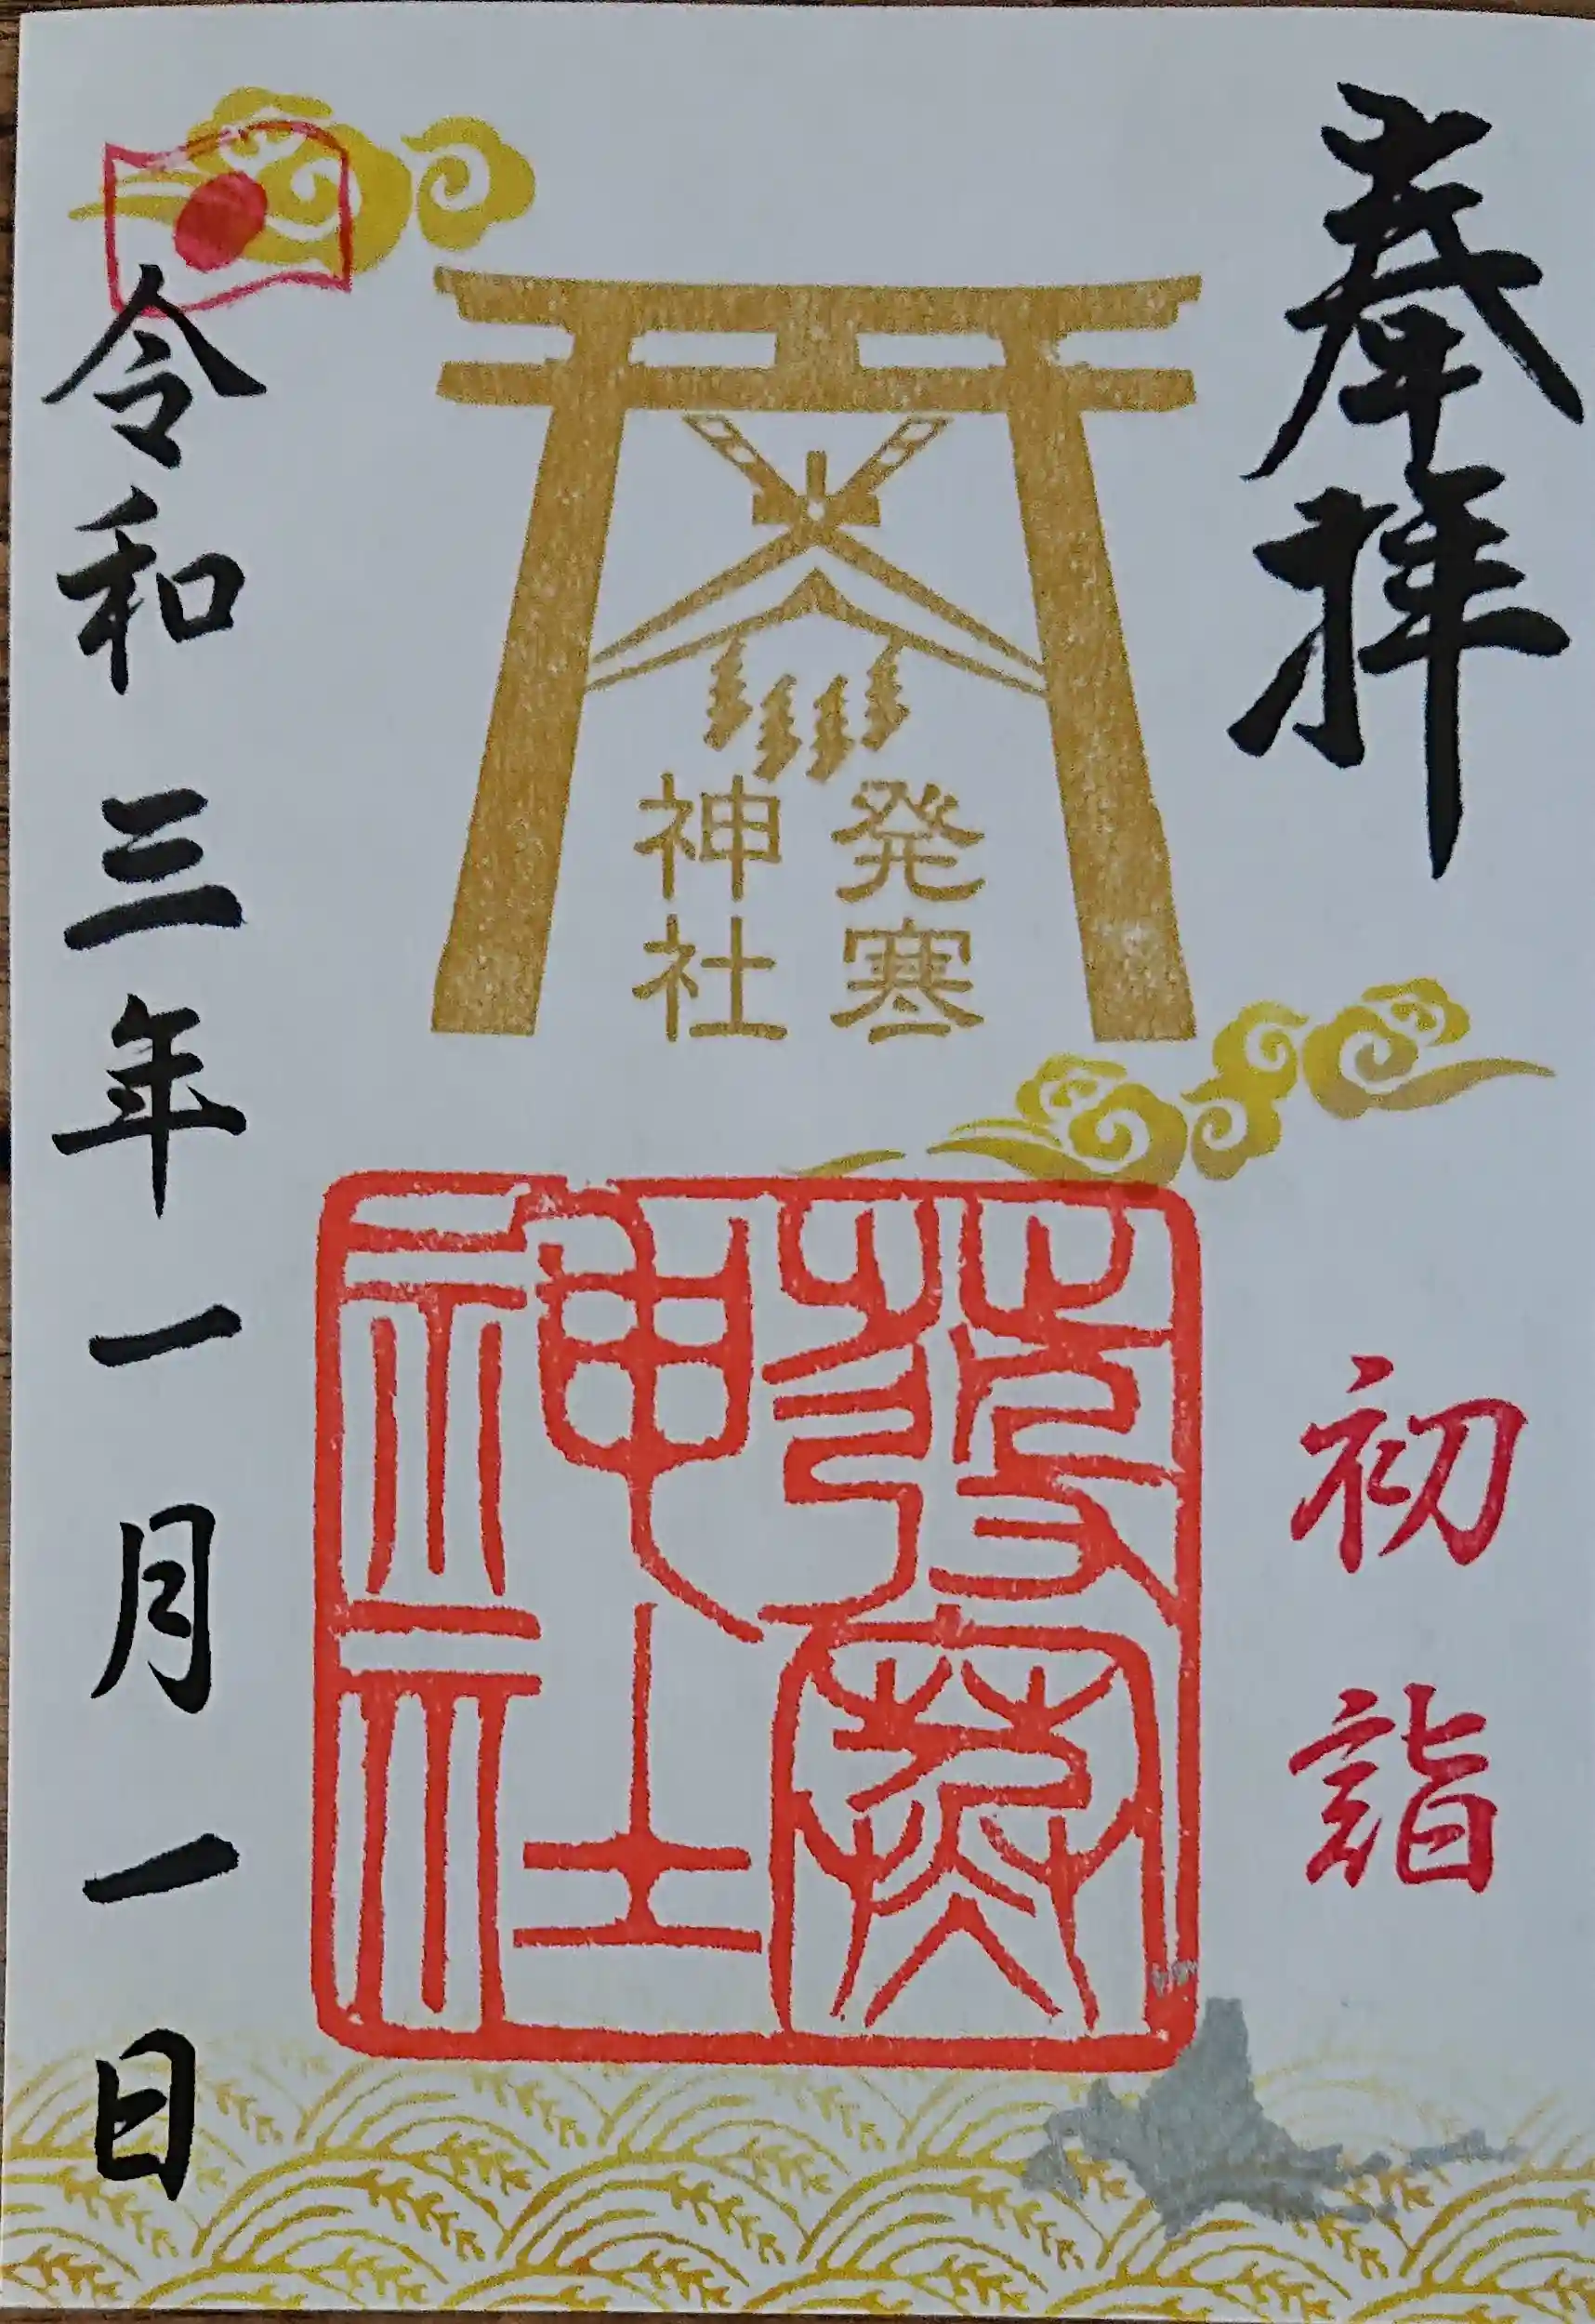 奉拝
初詣
発寒
神社
發寒
神社
令和三年一月一日